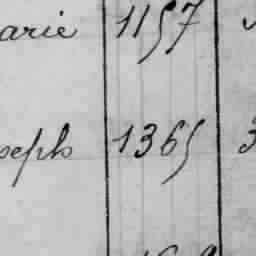 arie 1157
oseph 1365 3